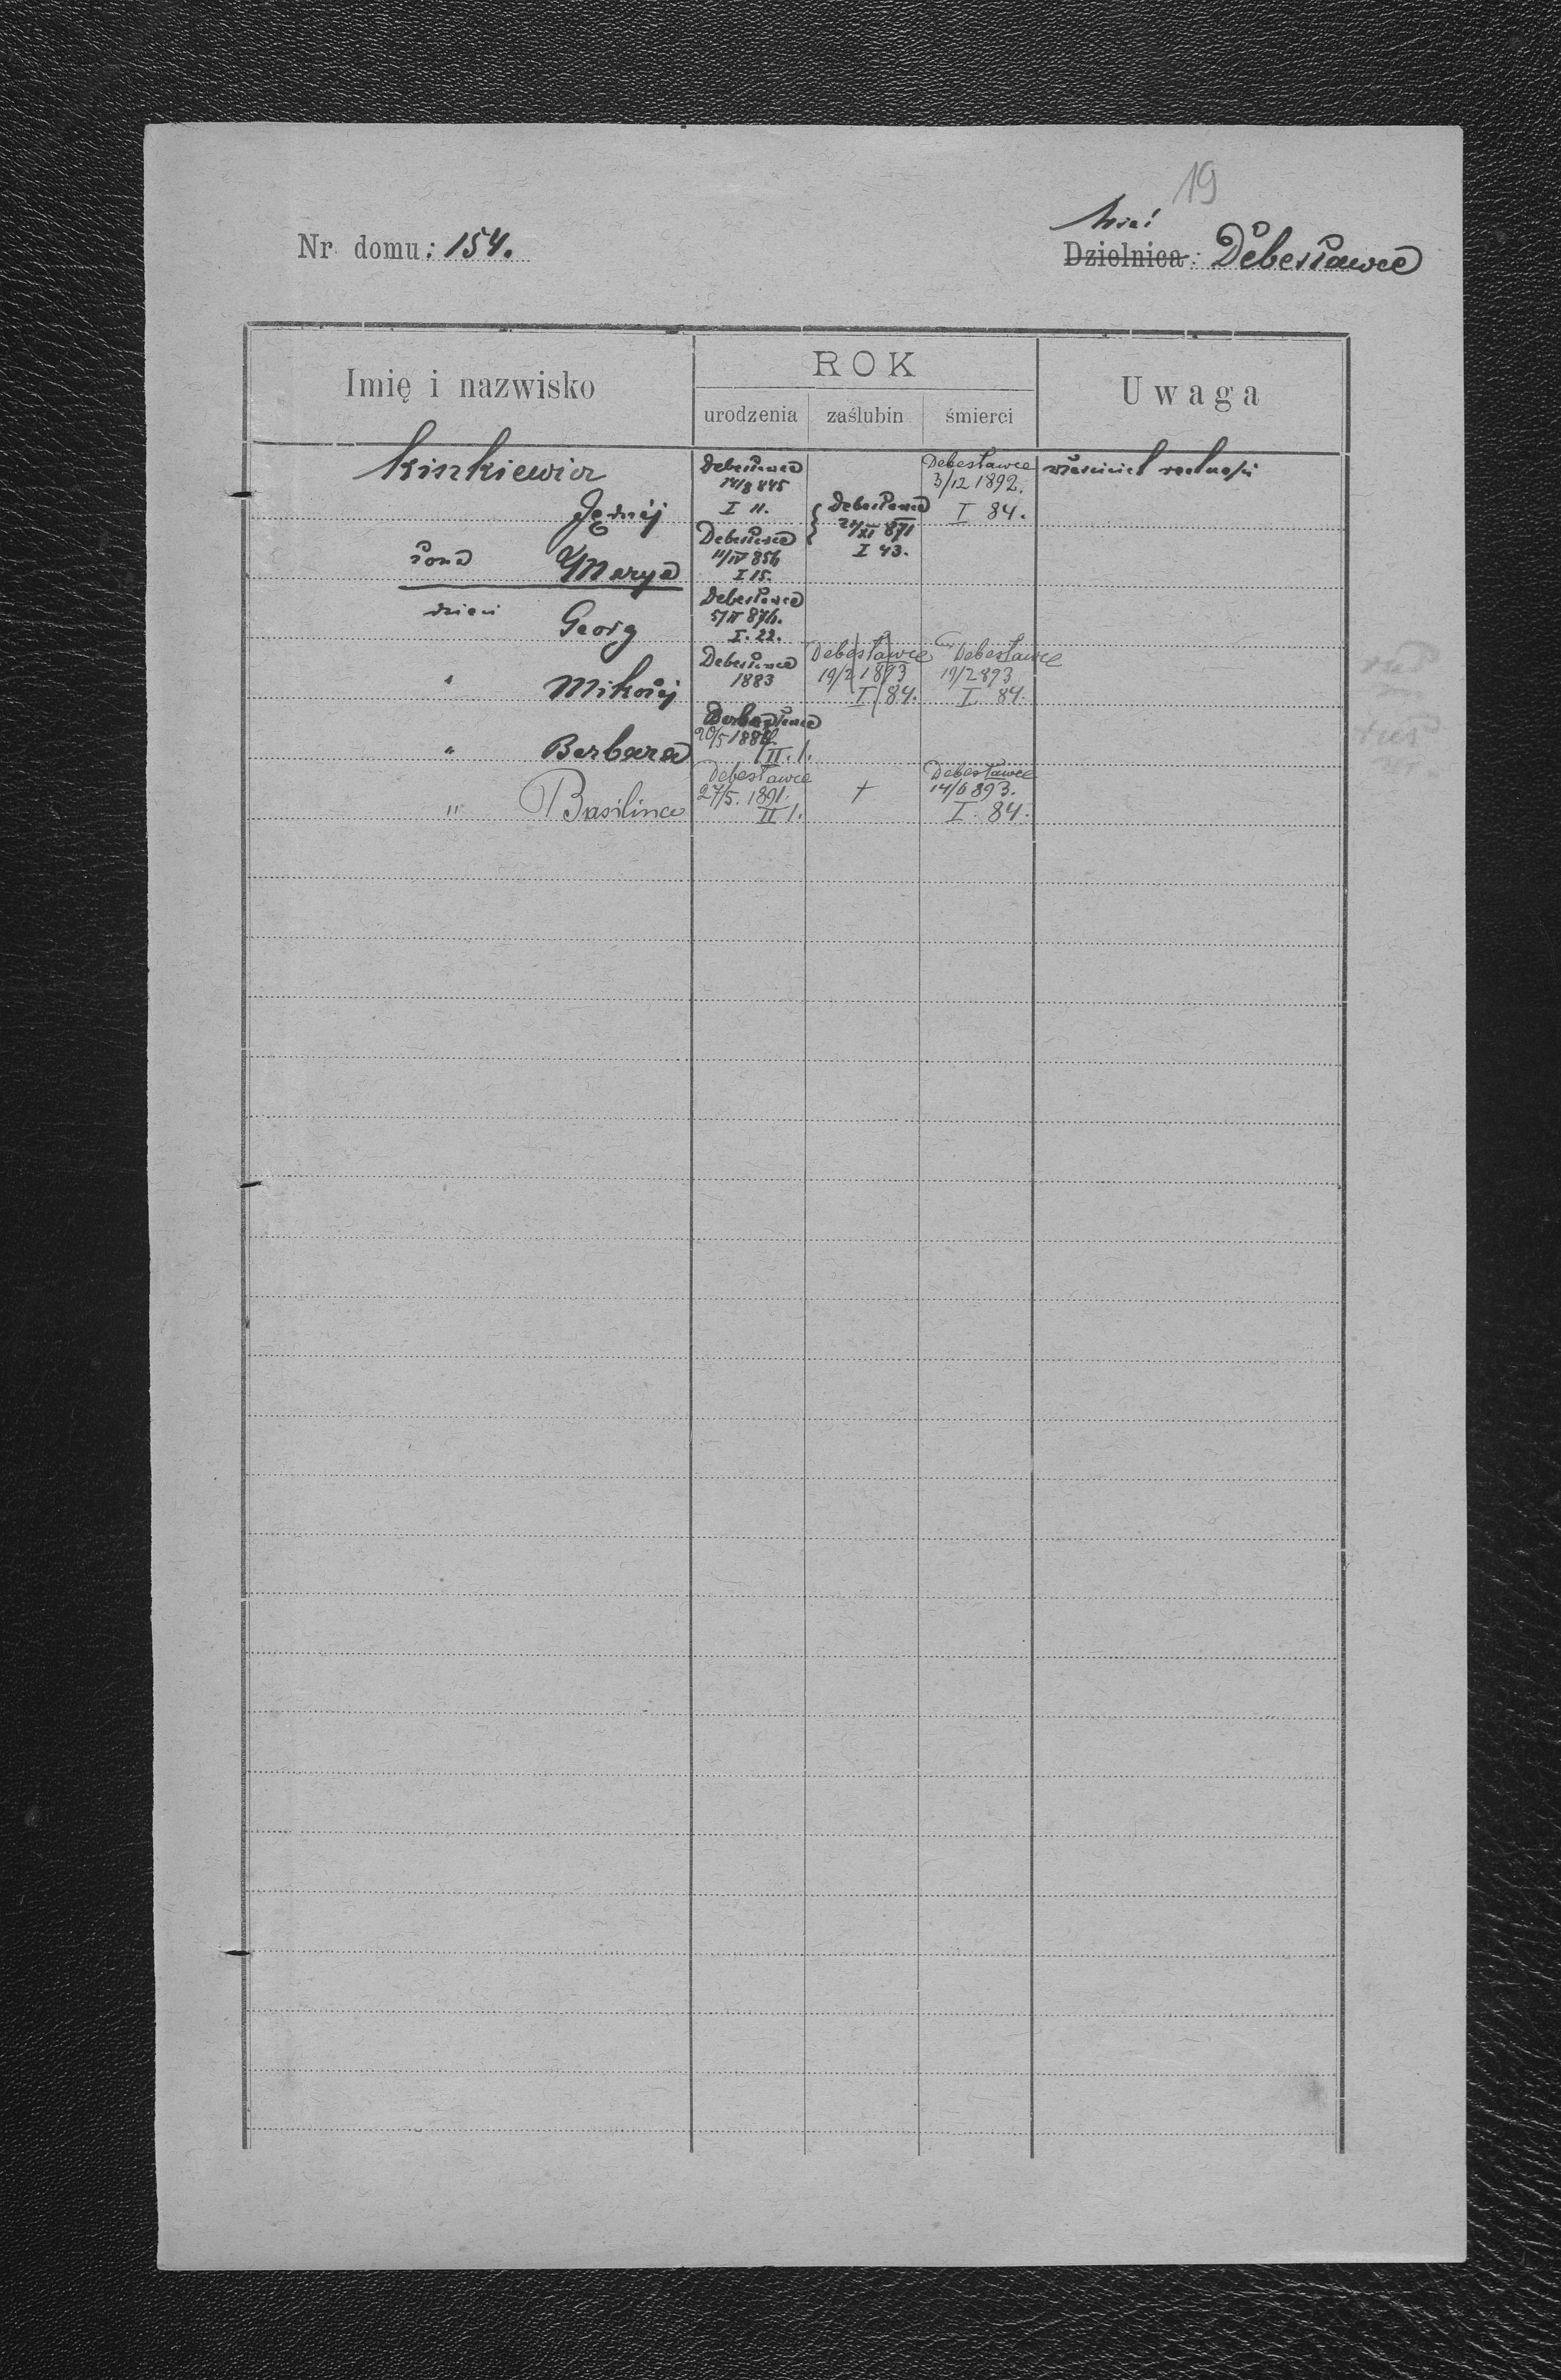 19
Nr domu: 154.
Wieś
Dzielnica: Debesławce
Imię i nazwisko
ROK
urodzenia zaślubin śmierci
Uwaga
Kinkiewicz
Debesławce
14/8 845
I 11.
Debesławce
3/12 1892.
I 84.
właściciel realności
Jędrzej
Debesławce
24/XI 871
I 43.
żona Marya
Debesławce
11/IV 856
I 15.
dzieci Georg
Debesławce
5/II 876.
I. 22.
" Mikołaj
Debesławce
1883
Debesławce
19/2 1893
I 84.
Debesławce
19/2 893
I. 84.
" Barbara
Debesławce
20/5 1888
II. 1.
" Basilina
Debesławce
27/5. 1891.
II 1.
+
Debesławce
14/6 893.
I. 84.